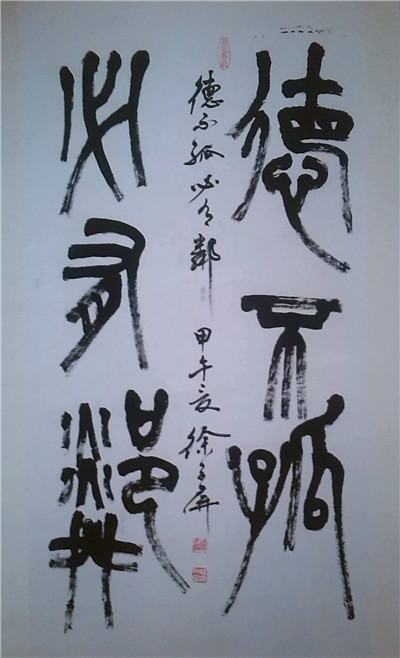 德不孤
必有鄰
德不孤必有鄰 甲午夏 徐子